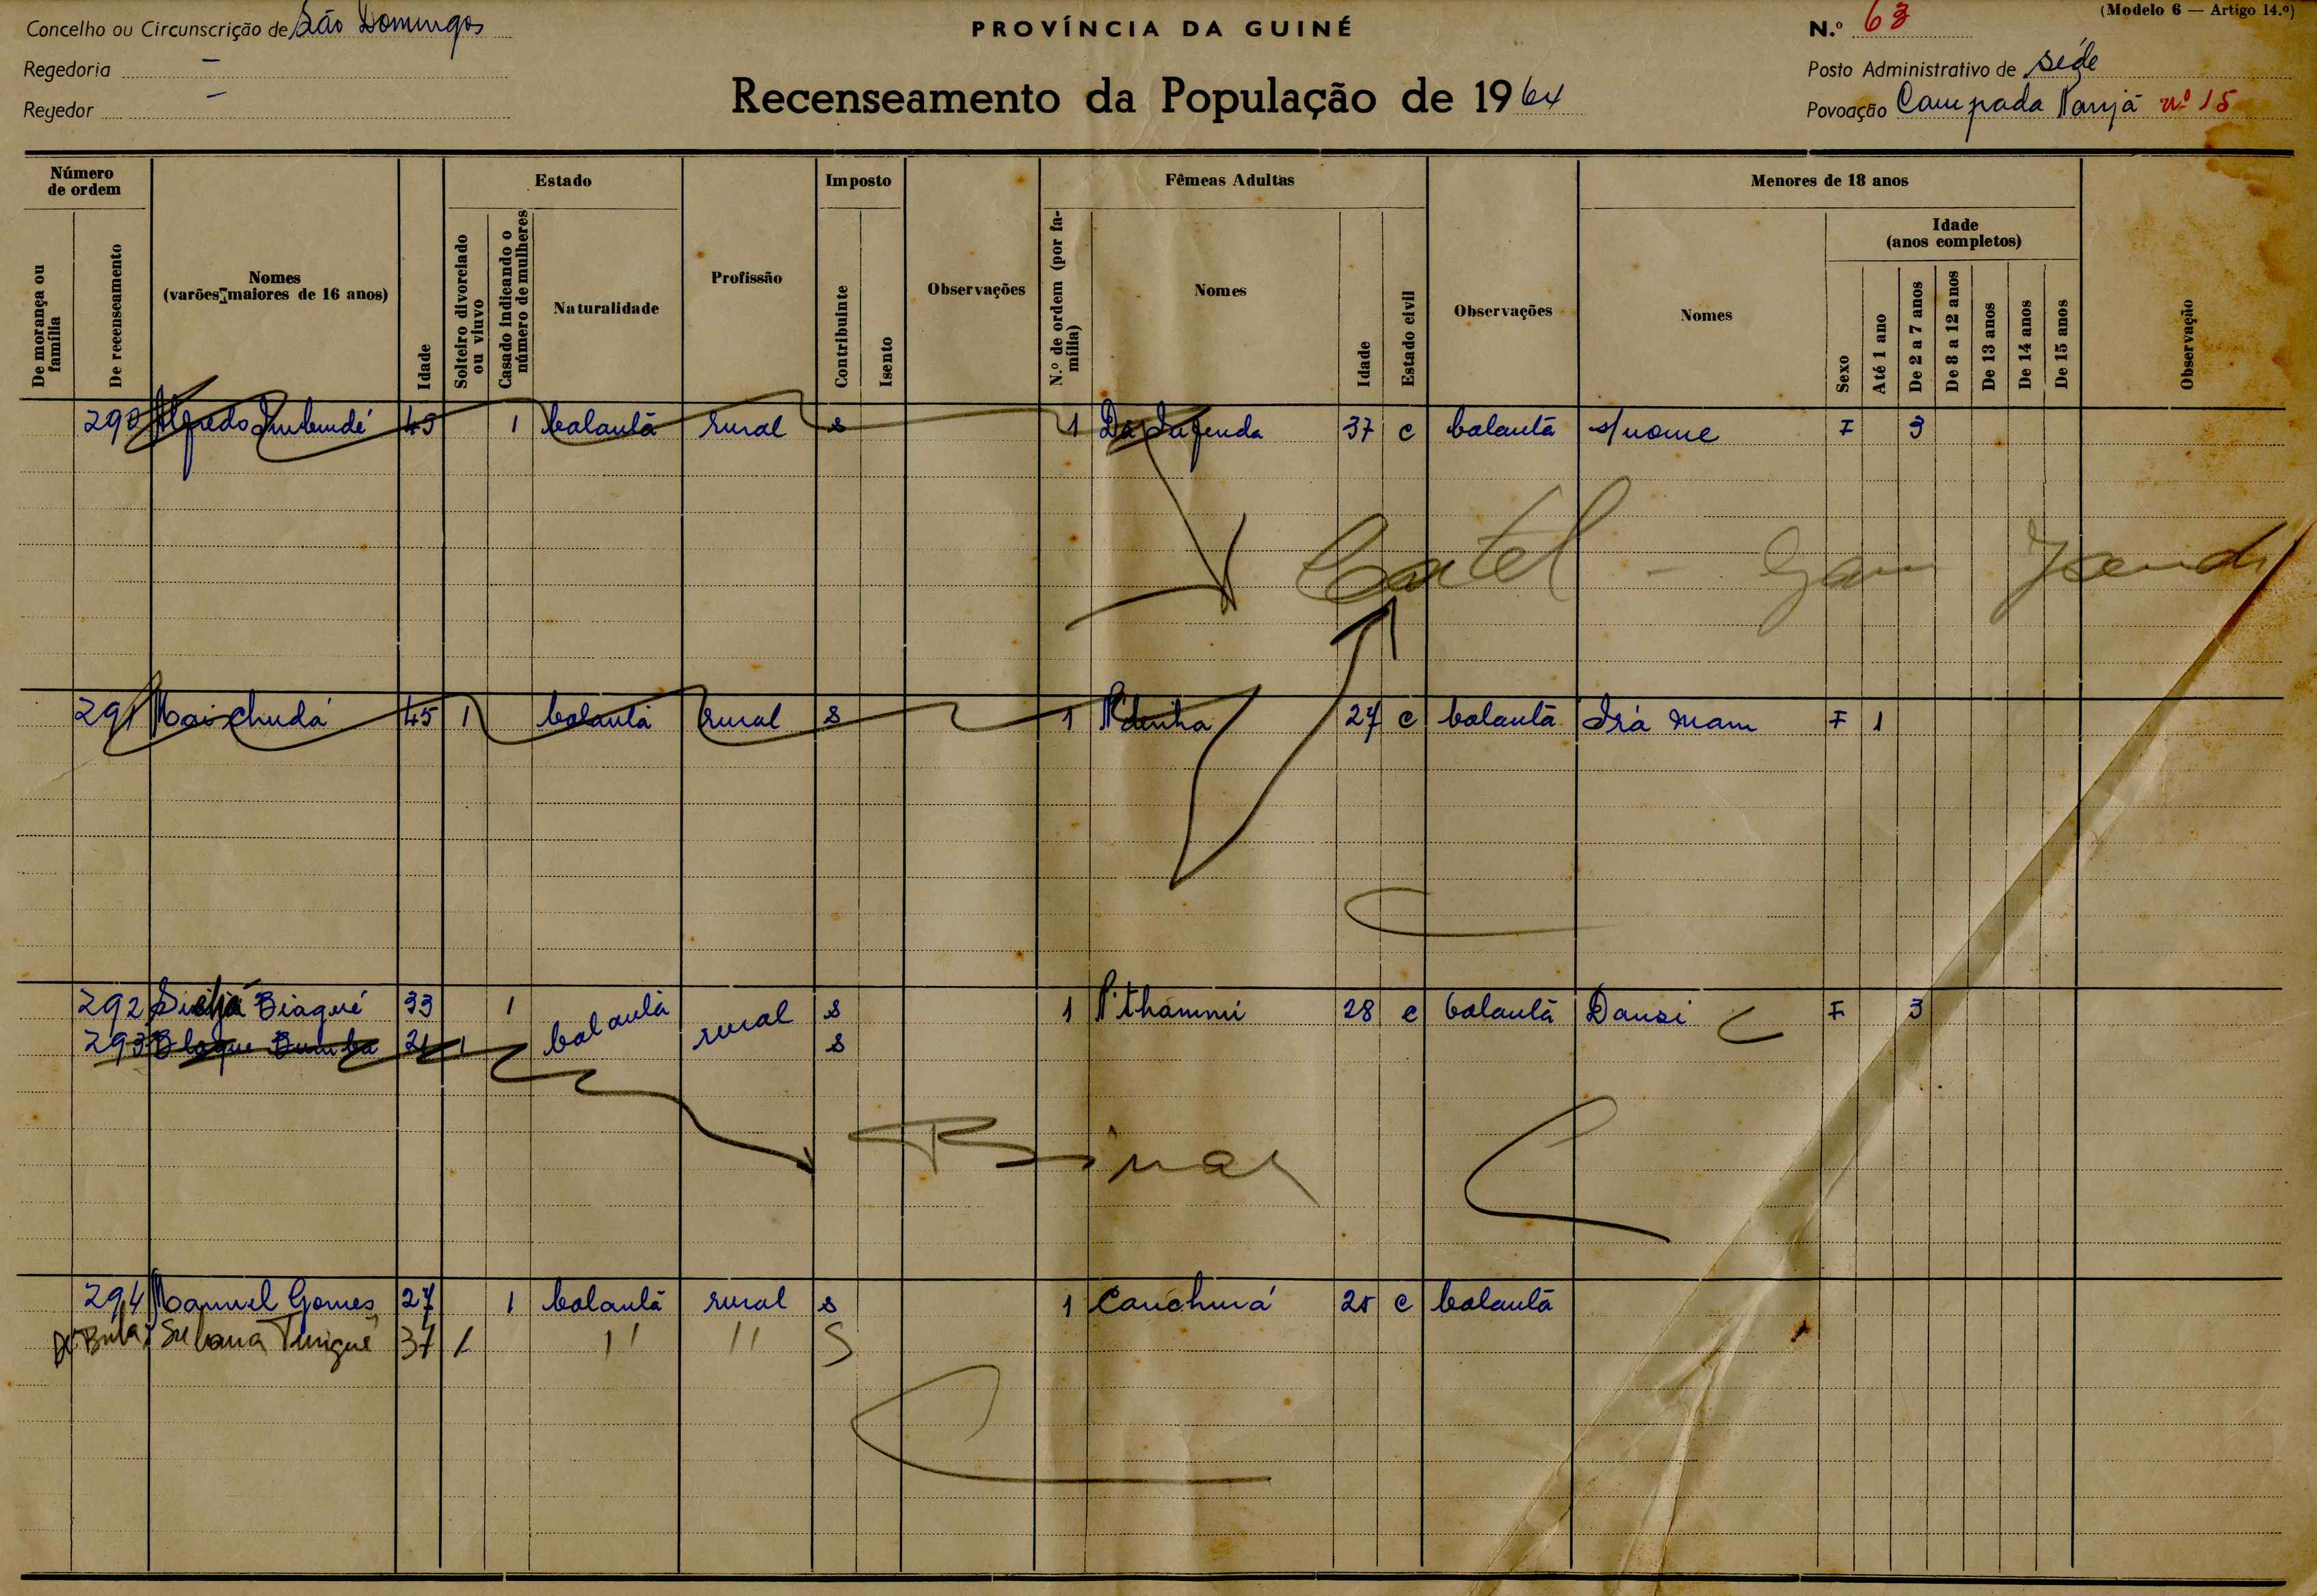 Concelho ou Circunscrição de São Domingos
PROVÍNCIA DA GUINÉ
N.º 63
(Modelo 6 — Artigo 14.º)
Regedoria —
Posto Administrativo de séde
Regedor —
Recenseamento da População de 1964
Povoação Campada nº 15
Número de ordem
De morança ou família
De recenseamento
Nomes (varões maiores de 16 anos)
Idade
Estado
Solteiro divorciado ou viuvo
Casado indicando o número de mulheres
Naturalidade
Profissão
Imposto
Contribuinte
Isento
Observações
Fêmeas Adultas
N.º de ordem (por família)
Nomes
Idade
Estado civil
Observações
Menores de 18 anos
Nomes
Sexo
Idade (anos completos)
Até 1 ano
De 2 a 7 anos
De 8 a 12 anos
De 13 anos
De 14 anos
De 15 anos
Observação
290 Alfredo 45 1 balantã rural s 1 37 c balantã s/nome F 3
291 45 1 balantã rural s 1 N'denha 27 c balantã Irá Mam F 1
292 Biagué 33 1 balantã rural s 1 N'thammi 28 c balantã Dansi F 3
293 21 1 s
Binar
294 Manuel Gomes 27 1 balantã rural s 1 Canchurá 25 c balantã
De Bula 37 / " " S